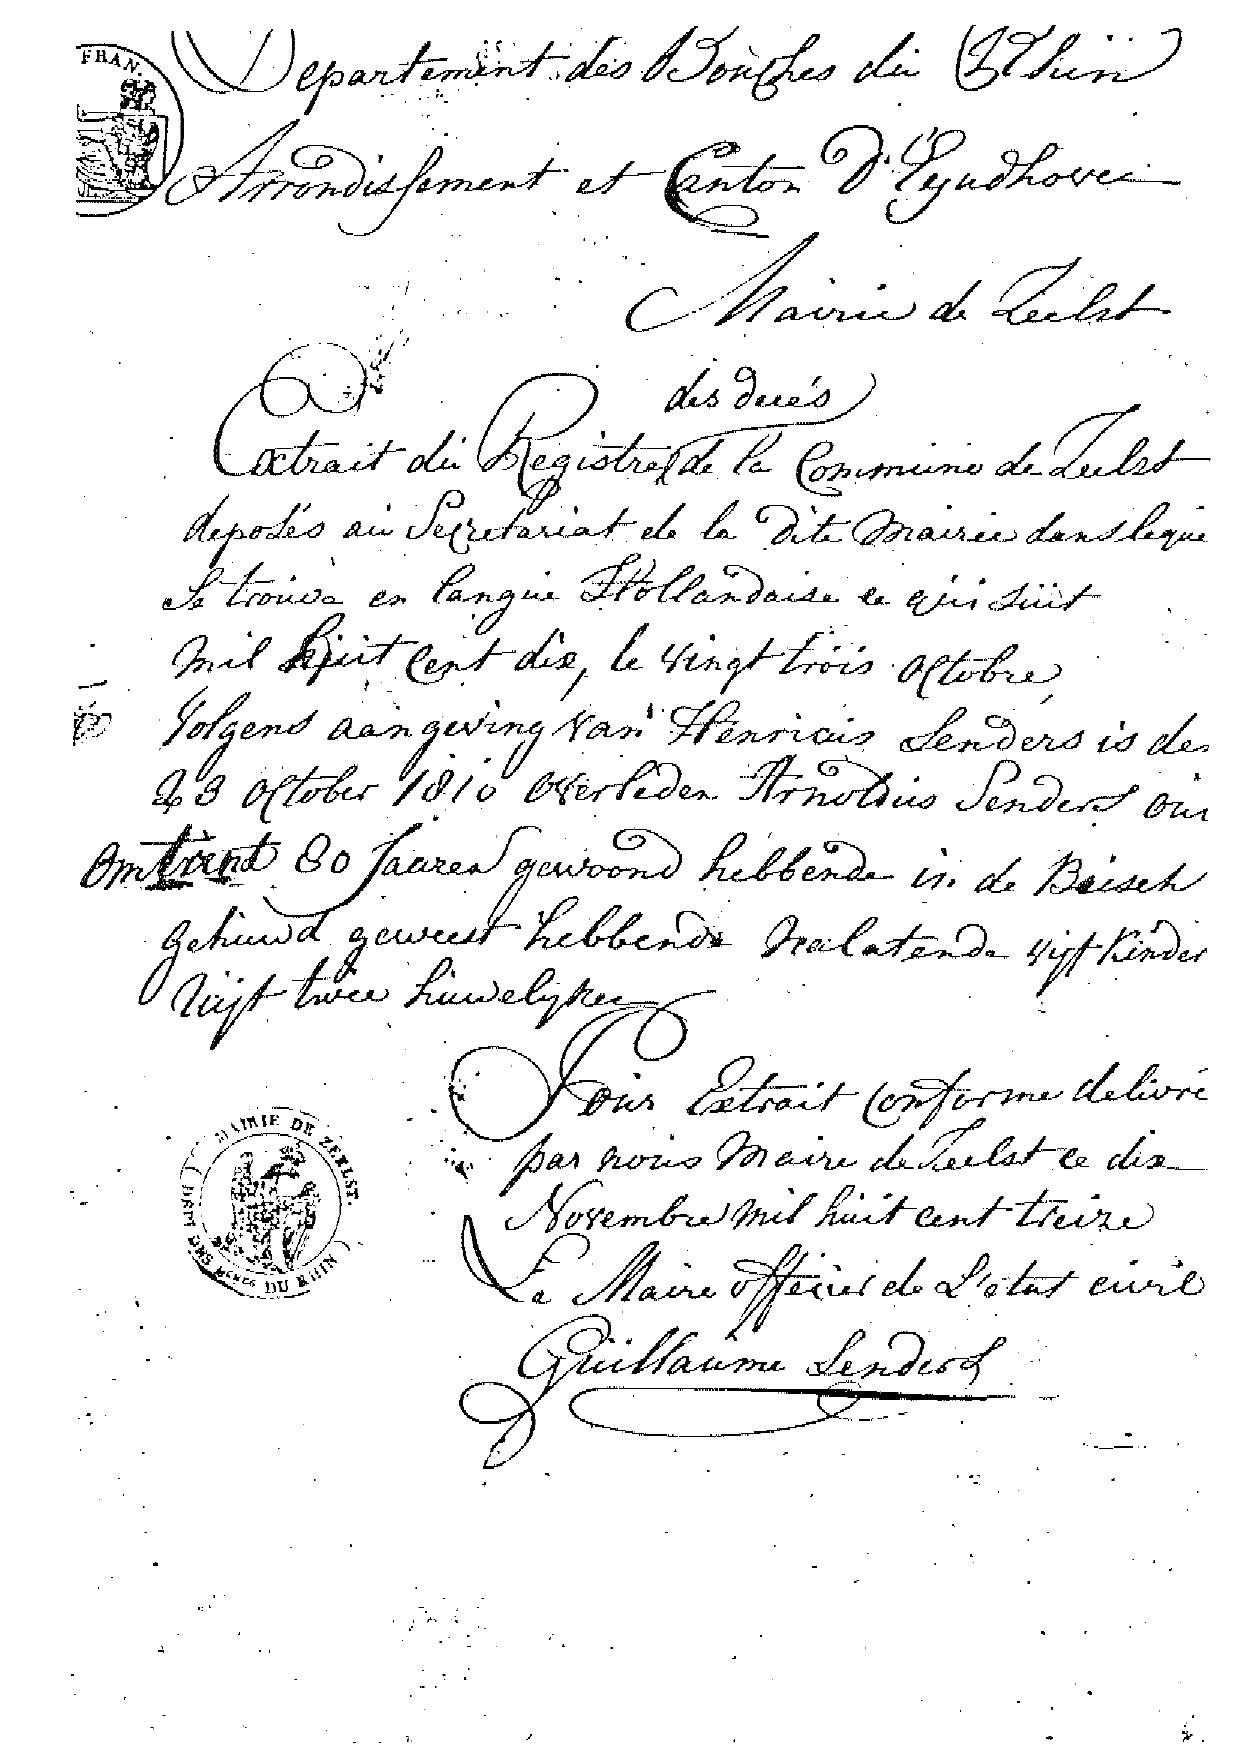 FRAN.
Departement des Bouches du Rhin
Arrondissement et Canton D'Eyndhoven
Mairie de Zeelst
des decés
Extrait du Registre de la Commune de Zeelst
deposés au Secretariat de la dite Mairie dans leque
se trouve en langue Hollandaise ce qui suit
mil huit cent dix, le vingt trois octobre
Volgens aangeving van Henricus Senders is de
23 october 1810 overleden Arnoldus Senders ou
omtrent 80 Jaaren gewoond hebbende in de Beisch
gehuwd geweest hebbende nalatende vijf kinder
uijt twee huwelyken
Pour Extrait conforme delivré
par nous Maire de Zeelst ce dix
Novembre mil huit cent treize
Le Maire officier de L'etat civil
Guillaume Senders
MAIRIE DE ZEELST.
DEPT DES BCHES DU RHIN